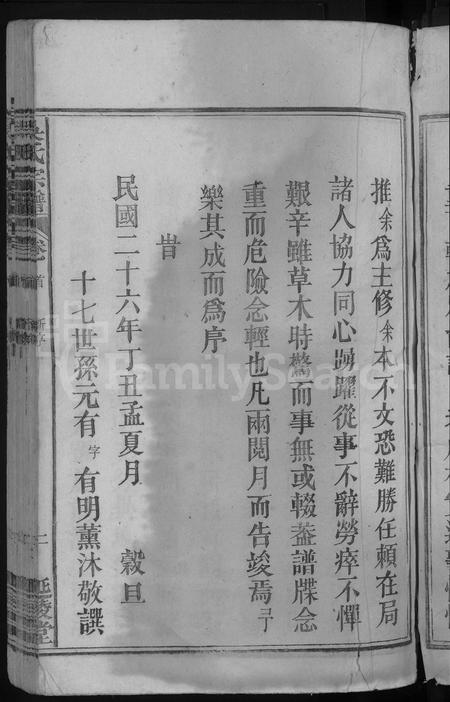 推余爲主修余本不文恐難勝任賴在局
諸人協力同心踴躍從事不辭勞瘁不憚
艱辛雖草木時驚而事無或輟葢譜牒念
重而危險念輕也凡兩閱月而告竣焉予
樂其成而爲序
旹
民國二十六年丁丑孟夏月 穀旦
十七世孫元有字有明薰沐敬譔
氏宗譜 卷首 新序 二 延陵堂
FamilySearch